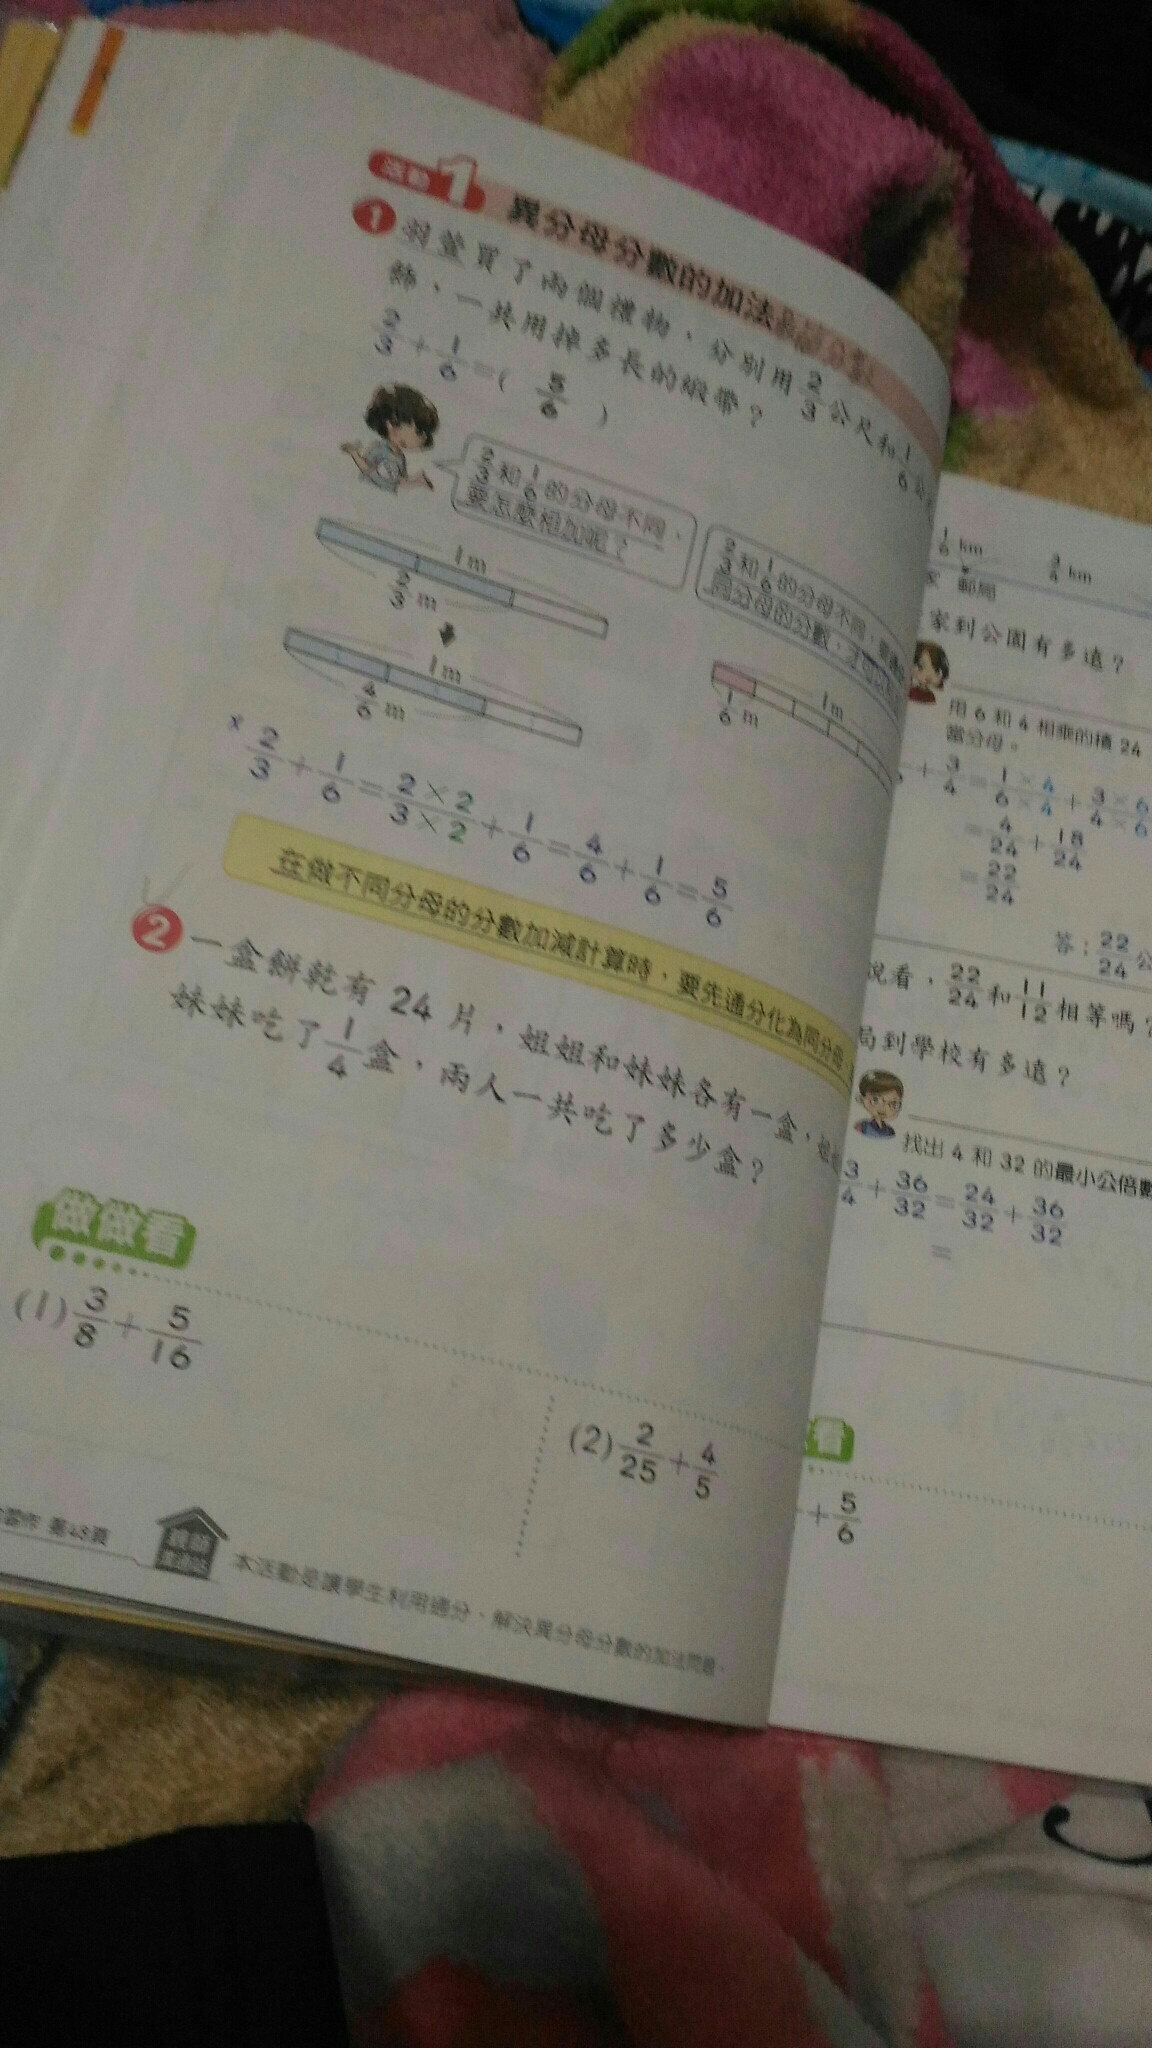 活動1 異分母分數的加法
1 羽萱買了兩個禮物，分別用2/3公尺和1/6
飾，一共用掉多長的緞帶？
2/3+1/6=( 5/6 )
2/3和1/6的分母不同，
要怎麼相加呢？
2/3和1/6的分母不同，
同分母的分數，才可以
1m
2/3 m
1m
4/6 m
1m
1/6 m
2/3+1/6=2×2/3×2+1/6=4/6+1/6=5/6
在做不同分母的分數加減計算時，要先通分化為同分母
2 一盒餅乾有 24 片，姐姐和妹妹各有一盒，
妹妹吃了1/4盒，兩人一共吃了多少盒？
做做看
(1) 3/8+5/16
(2) 2/25+4/5
習作 第48頁
本活動是讓學生利用通分，解決異分母分數的加法問題。
1/6 km 3/4 km
郵局
家到公園有多遠？
用 6 和 4 相乘的積 24
當分母。
+3/4=1×4/6×4+3×6/4×6
=4/24+18/24
=22/24
答：22/24公
說看，22/24和11/12相等嗎？
局到學校有多遠？
找出 4 和 32 的最小公倍數
3/4+36/32=24/32+36/32
=
看
+5/6